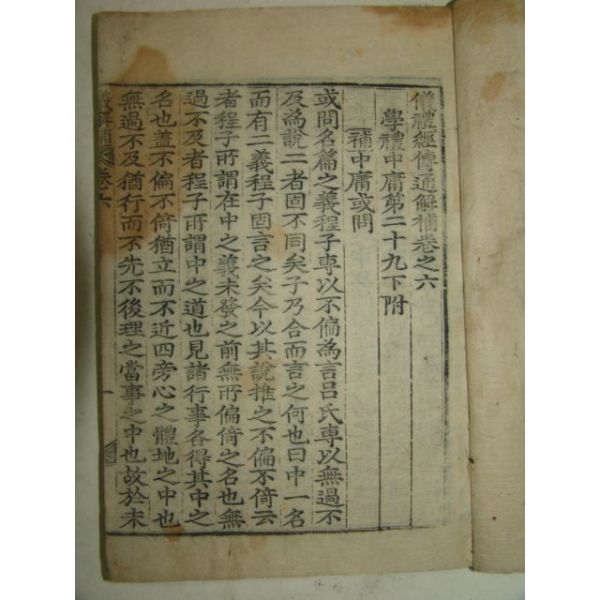 儀禮經傳通解補卷之六
學禮中庸第二十九下附
補中庸或問
或問名篇之義程子專以不偏為言呂氏專以無過不
及為說二者固不同矣子乃合而言之何也曰中一名
而有二義程子固言之矣今以其說推之不偏不倚云
者程子所謂在中之義未發之前無所偏倚之名也無
過不及者程子所謂中之道也見諸行事各得其中之
名也盖不偏不倚猶立而不近四旁心之體地之中也
無過不及猶行而不先不後理之當事之中也故於未
儀解補 卷六 一